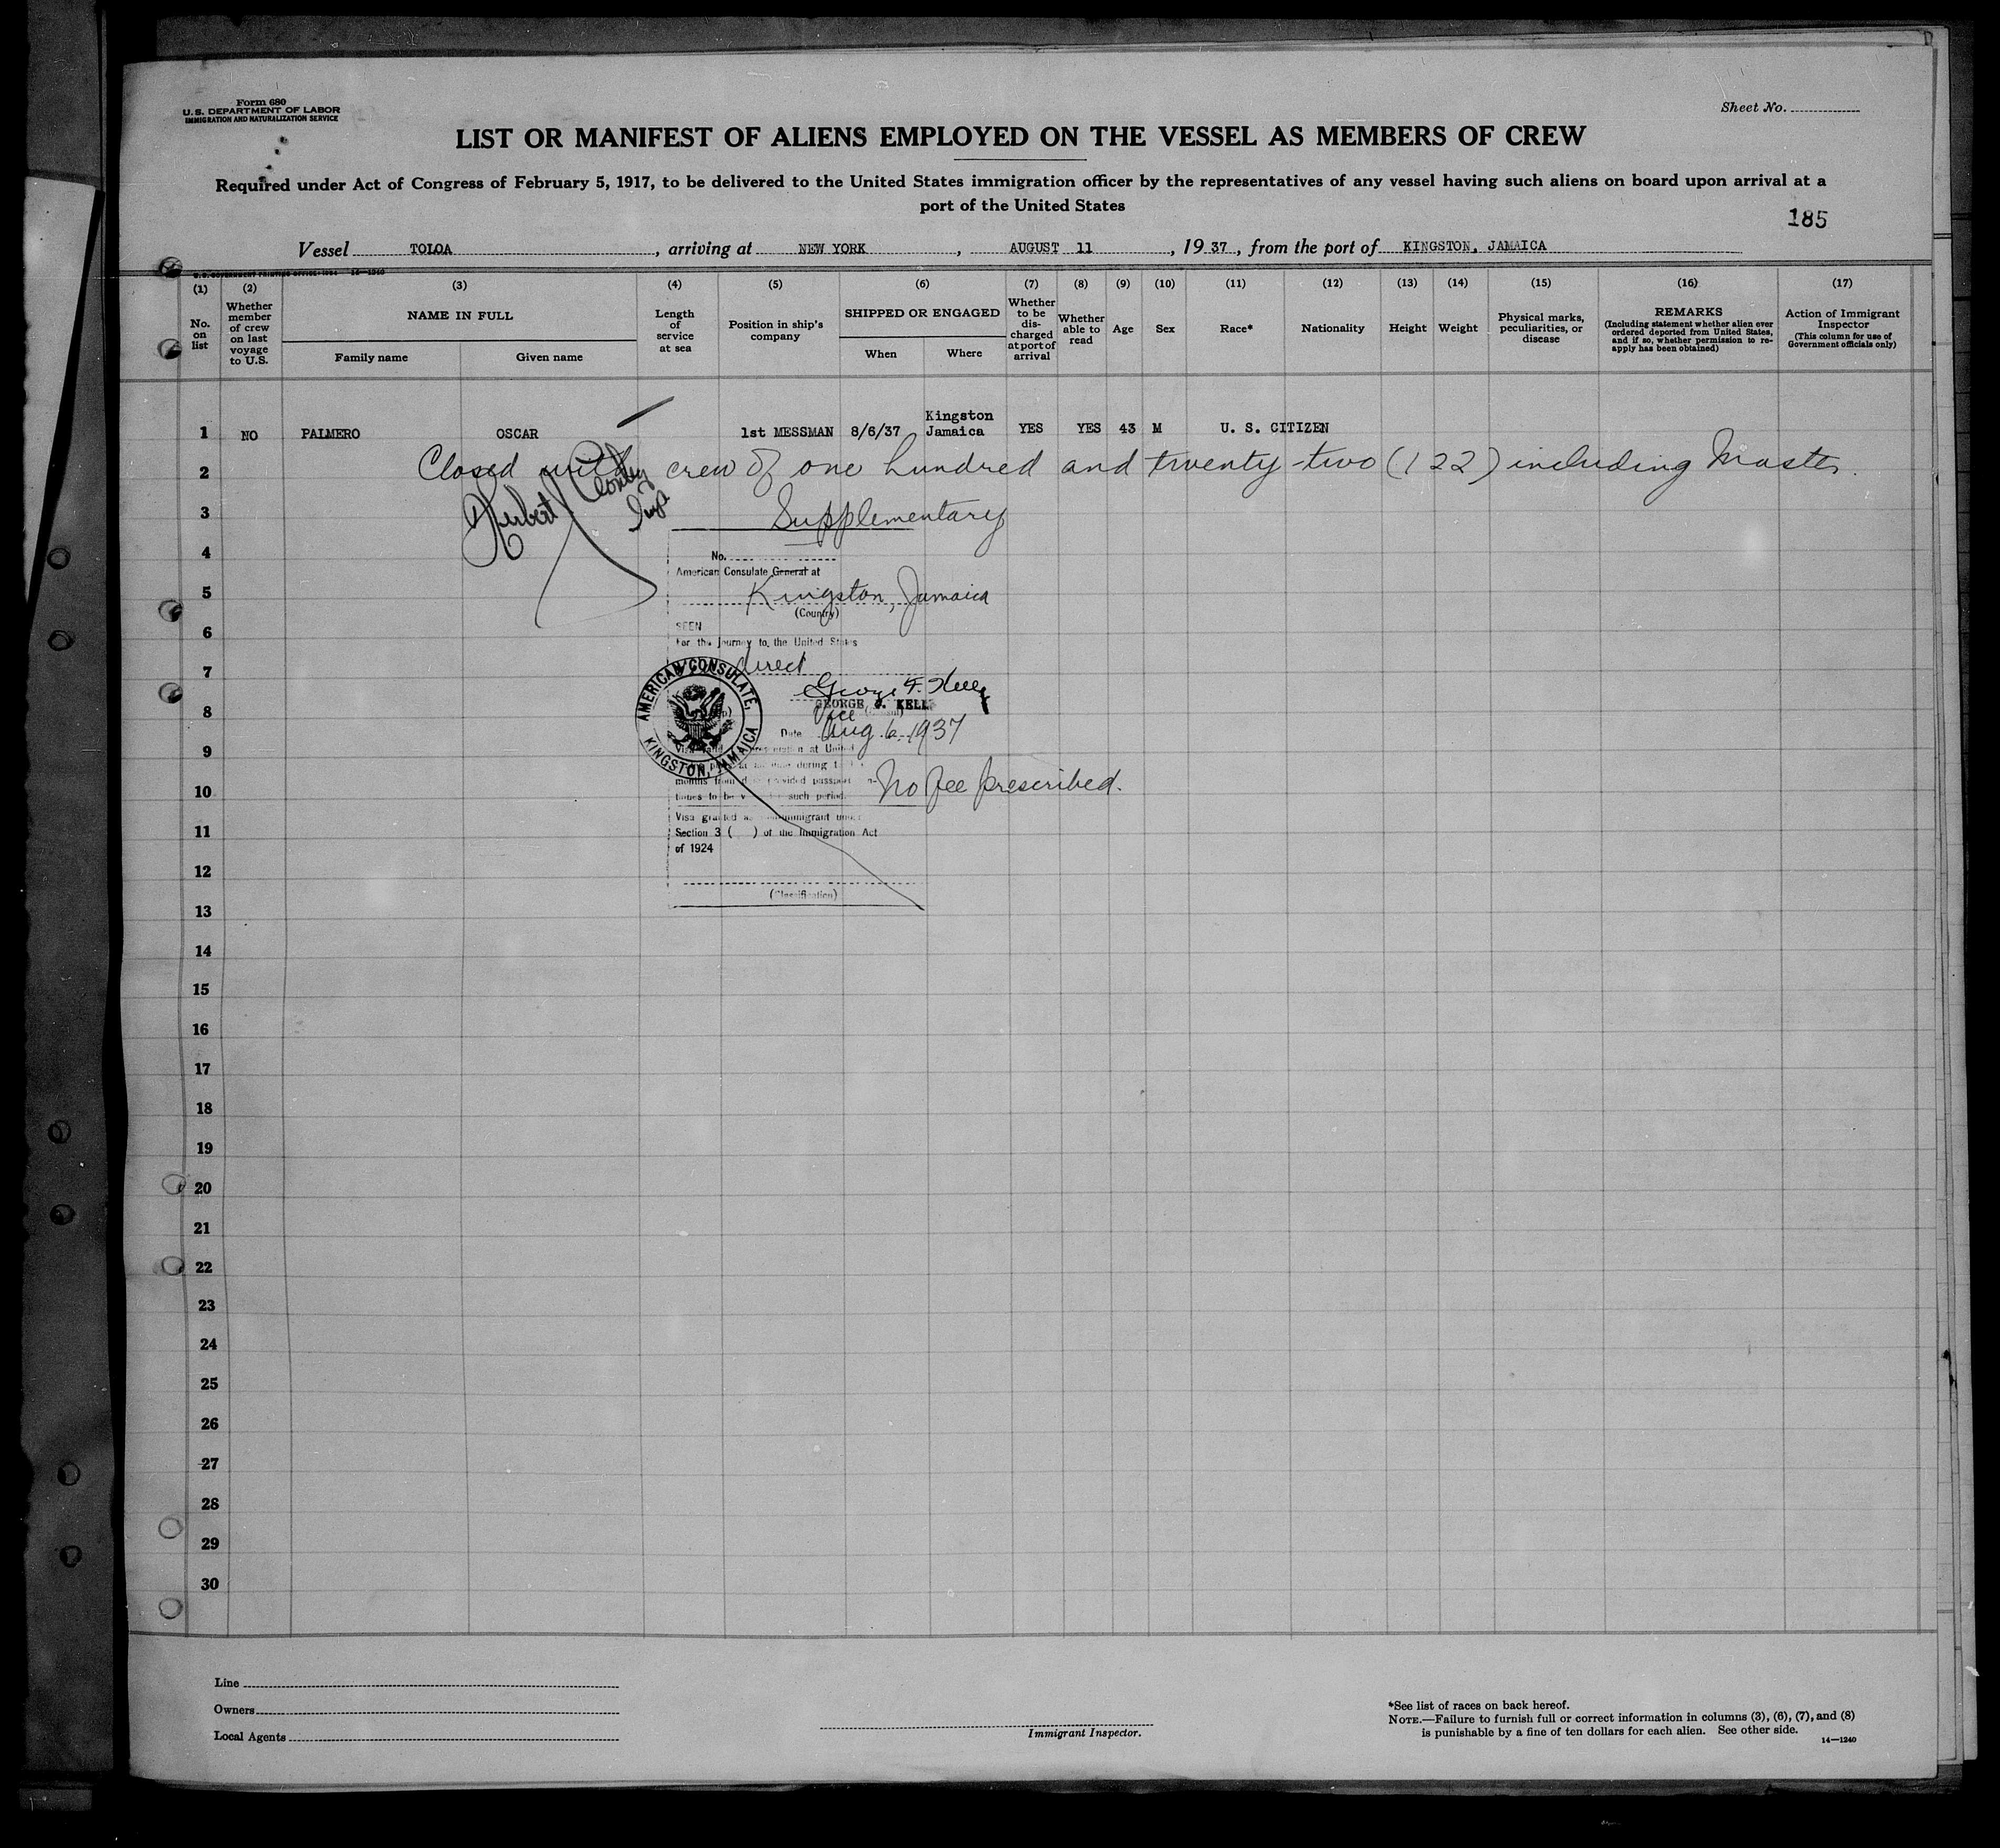 Form 680
U. S. DEPARTMENT OF LABOR
IMMIGRATION AND NATURALIZATION SERVICE
Sheet No.
LIST OR MANIFEST OF ALIENS EMPLOYED ON THE VESSEL AS MEMBERS OF CREW
Required under Act of Congress of February 5, 1917, to be delivered to the United States immigration officer by the representatives of any vessel having such aliens on board upon arrival at a
port of the United States
185
Vessel TOLOA, arriving at NEW YORK, AUGUST 11, 1937, from the port of KINGSTON, JAMAICA
U. S. GOVERNMENT PRINTING OFFICE: 1934 14-1240
(1) (2) (3) (4) (5) (6) (7) (8) (9) (10) (11) (12) (13) (14) (15) (16) (17)
No. on list
Whether member of crew on last voyage to U.S.
NAME IN FULL
Family name Given name
Length of service at sea
Position in ship's company
SHIPPED OR ENGAGED
When Where
Whether to be discharged at port of arrival
Whether able to read
Age
Sex
Race*
Nationality
Height
Weight
Physical marks, peculiarities, or disease
REMARKS
(Including statement whether alien ever ordered deported from United States, and if so, whether permission to reapply has been obtained)
Action of Immigrant Inspector
(This column for use of Government officials only)
1 NO PALMERO OSCAR 1st MESSMAN 8/6/37 Kingston Jamaica YES YES 43 M U. S. CITIZEN
2 Closed with crew of one hundred and twenty-two (122) including Master.
Herbert
3 Supplementary
4 No.
American Consulate General at
5 Kingston, Jamaica
(Country)
6 SEEN
For the journey to the United States
7 direct
AMERICAN CONSULATE,
KINGSTON, JAMAICA
George F. Kelly
8 GEORGE F. KELLY
Vice
Date Aug. 6, 1937
9
10 No fee prescribed.
Visa granted as nonimmigrant under
11 Section 3 ( ) of the Immigration Act
of 1924
12
(Classification)
13
14
15
16
17
18
19
20
21
22
23
24
25
26
27
28
29
30
Line
Owners
Local Agents
Immigrant Inspector.
*See list of races on back hereof.
NOTE.—Failure to furnish full or correct information in columns (3), (6), (7), and (8)
is punishable by a fine of ten dollars for each alien. See other side.
14—1240